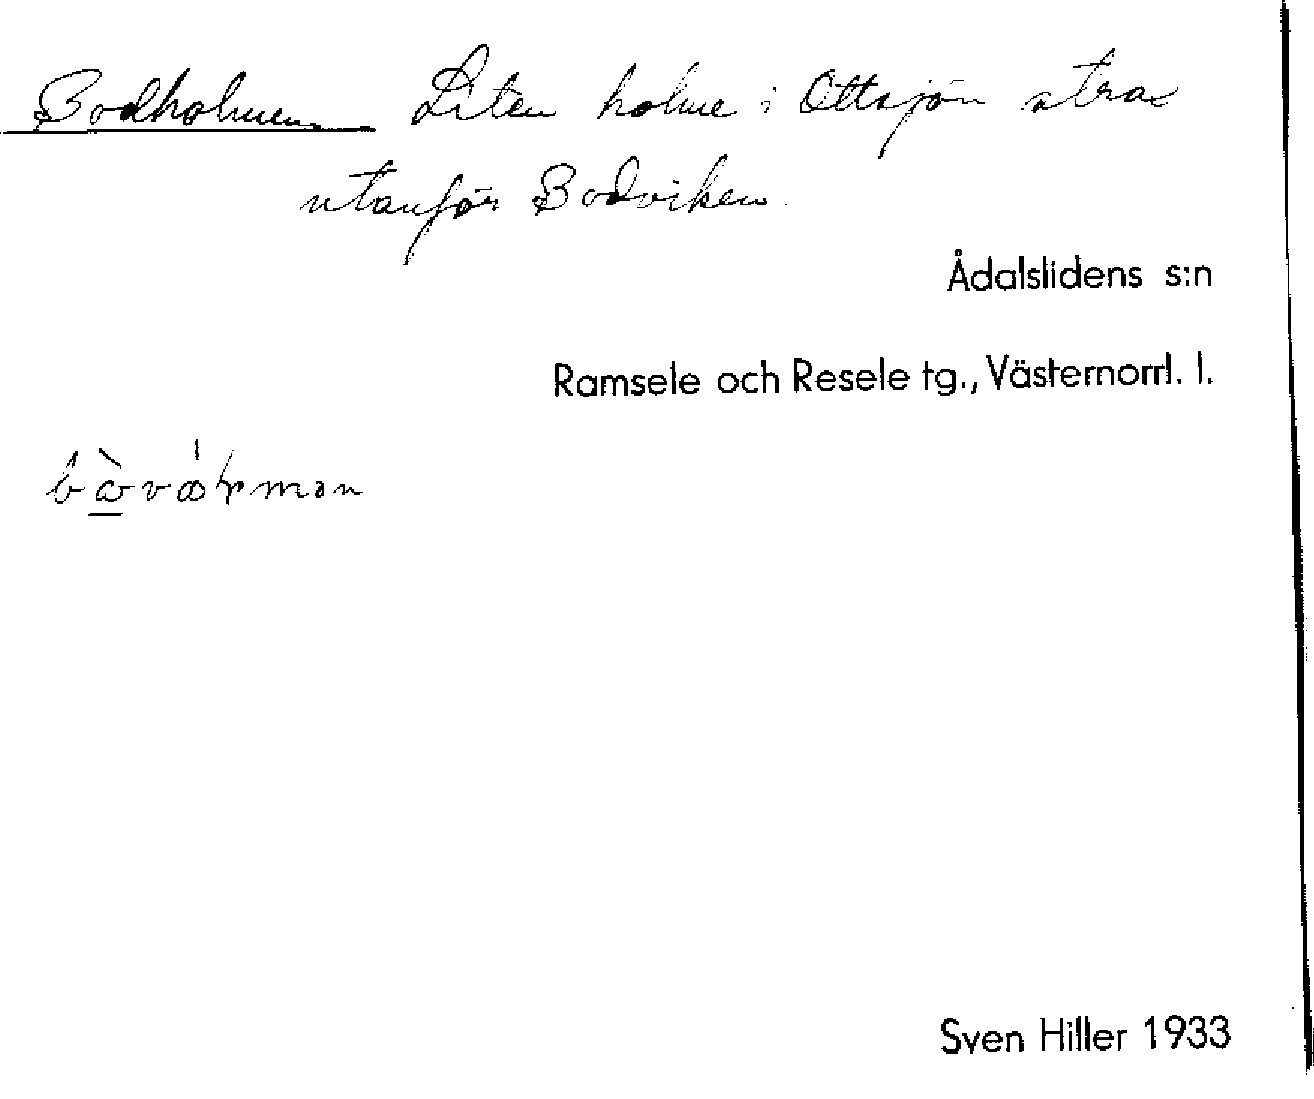 Bodholmen Liten holme i Ottsjön strax
utanför Bodviken.
Ådalslidens s:n
Ramsele och Resele tg., Västernorrl. l.
Sven Hiller 1933